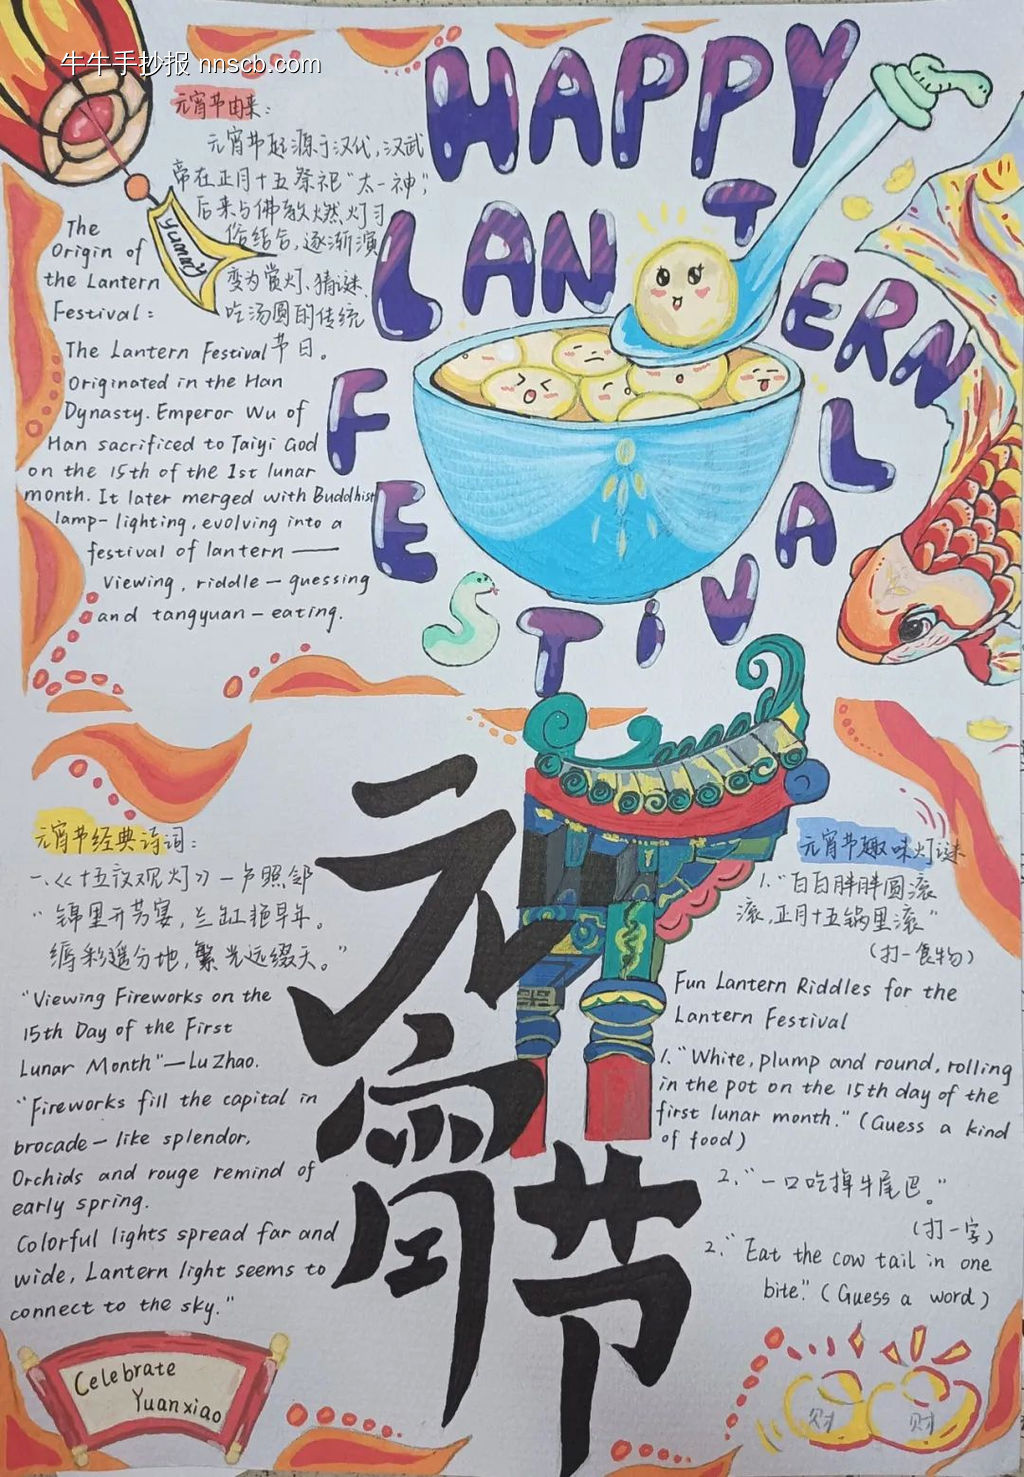 牛牛手抄报 nnscb.com
HAPPY
LANTERN
FESTIVAL
元宵节由来:
元宵节起源于汉代,汉武
帝在正月十五祭祀“太一神”,
后来与佛教燃灯习
俗结合,逐渐演
变为赏灯、猜谜、
吃汤圆的传统
节日。
yuanxiao
The
Origin of
the Lantern
Festival:
The Lantern Festival
Originated in the Han
Dynasty. Emperor Wu of
Han sacrificed to Taiyi God
on the 15th of the 1st lunar
month. It later merged with Buddhist
lamp-lighting, evolving into a
festival of lantern —
Viewing, riddle-guessing
and tangyuan-eating.
元宵节
元宵节经典诗词:
一、《十五夜观灯》—卢照邻
“锦里开芳宴,兰缸艳早年。
缛彩遥分地,繁光远缀天。”
"Viewing Fireworks on the
15th Day of the First
Lunar Month"—Lu Zhao.
"Fireworks fill the capital in
brocade-like splendor,
Orchids and rouge remind of
early spring.
Colorful lights spread far and
wide, Lantern light seems to
connect to the sky."
Celebrate
Yuanxiao
元宵节趣味灯谜
1.“白白胖胖圆滚
滚,正月十五锅里滚”
(打一食物)
Fun Lantern Riddles for the
Lantern Festival
1."White, plump and round, rolling
in the pot on the 15th day of the
first lunar month." (Guess a kind
of food)
2.“一口吃掉牛尾巴。”
(打一字)
2."Eat the cow tail in one
bite". (Guess a word)
财 财